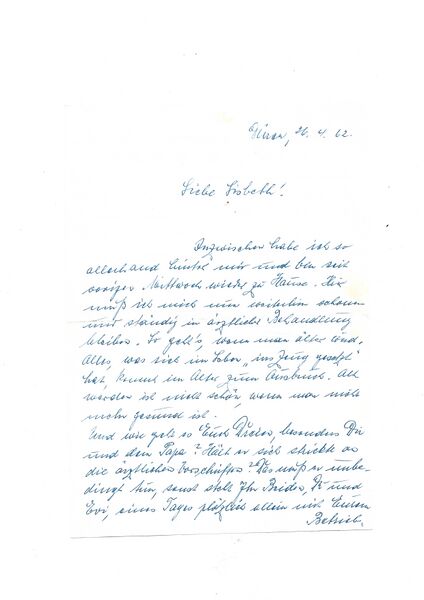 Düren, 26. 4. 62.
Liebe Lisbeth!
Inzwischen habe ich so
allerhand hinter mir und bin seit
vorigen Mittwoch wieder zu Hause. Hier
muß ich mich nun weiterhin schonen
und ständig in ärztlicher Behandlung
bleiben. So geht's, wenn man älter wird,
Alles, was sich im Leben „ins Zeug gesetzt"
hat, kommt im Alter zum Ausbruch. Alt
werden ist nicht schön, wenn man nicht
mehr gesund ist.
Und wie geht es Euch Dreien, besonders Dir
und dem Papa? Hält er sich strickte an
die ärztlichen Vorschriften? Das muß er unbe-
dingt tun, sonst steht Ihr Beiden, Du und
Evi, eines Tages plötzlich allein mit Eurem
Betrieb.